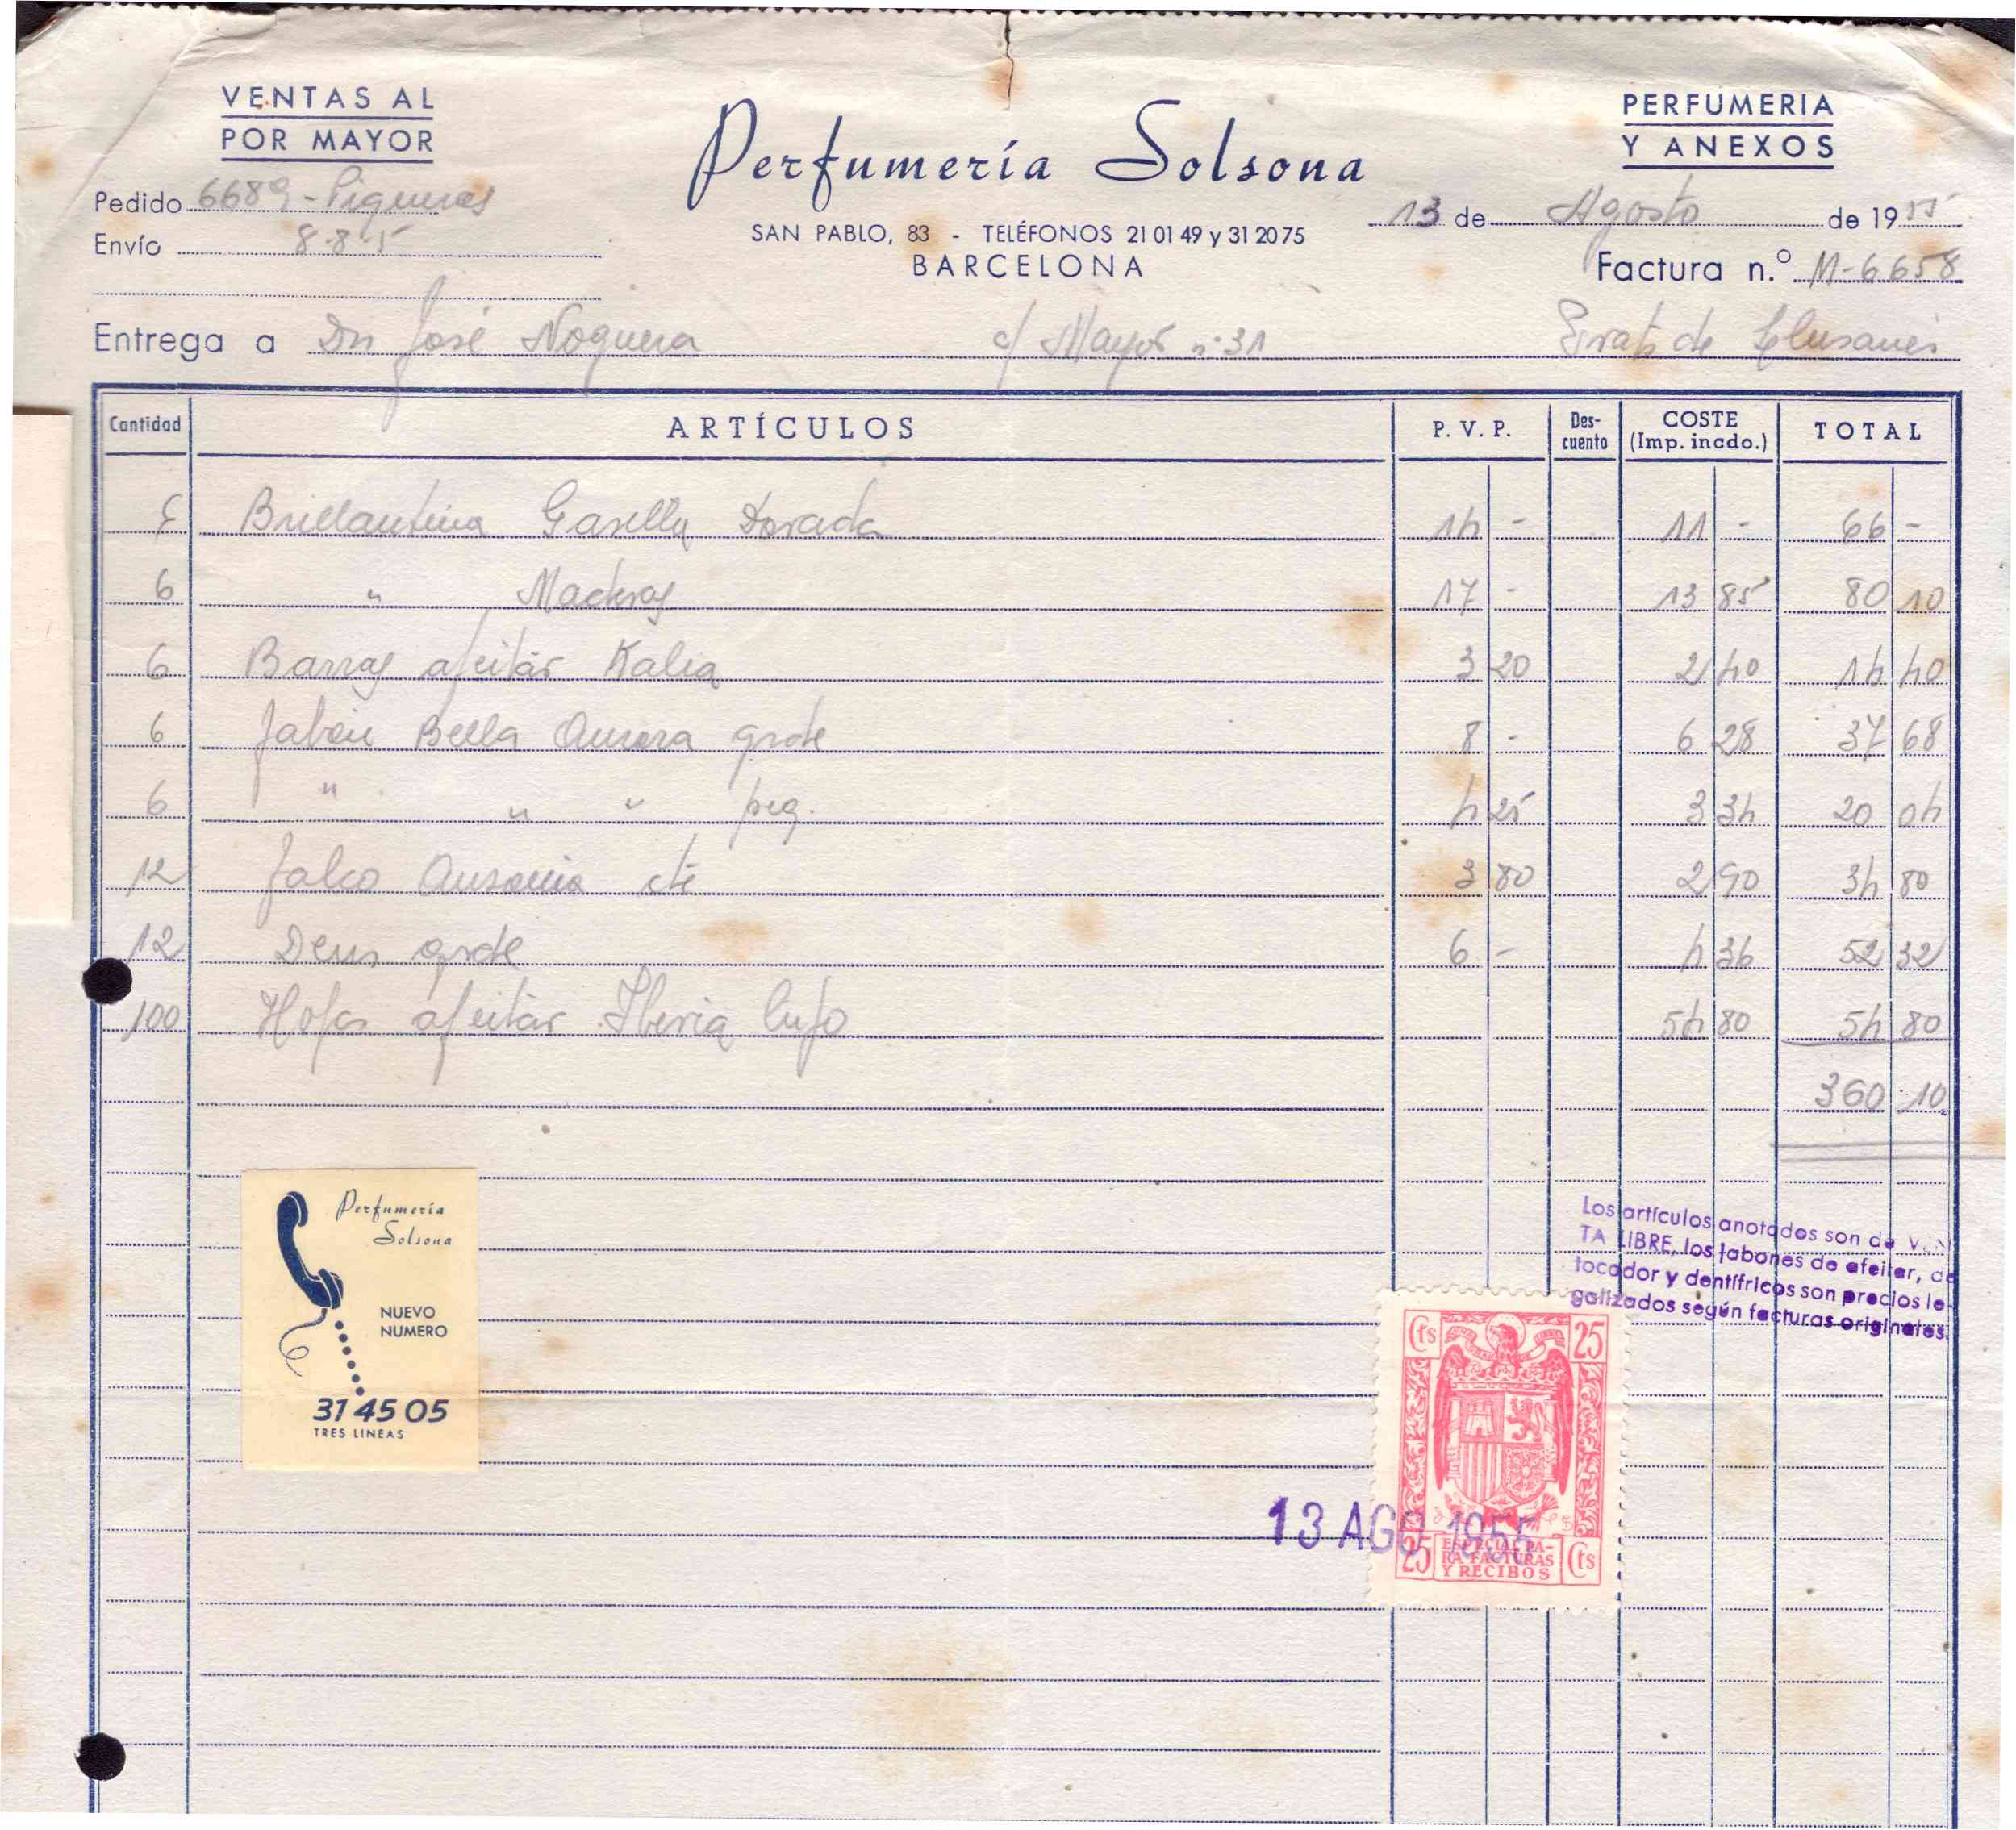 VENTAS AL
POR MAYOR
Perfumería Solsona
PERFUMERIA
Y ANEXOS
Pedido 6689 - Piqueras
13 de Agosto de 1955
SAN PABLO, 83 - TELÉFONOS 21 01 49 y 31 20 75
Envío 8-8-5
BARCELONA
Factura n.º M-6658
Entrega a Dn José Noguera c/ Mayor nº 31 Prats de Llusanés
Cantidad ARTÍCULOS P. V. P. Des-cuento COSTE (Imp. incdo.) TOTAL
6 Brillantina Gasella Dorada 14 - 11 - 66 -
6 " Maderas 17 - 13 85 80 10
6 Barras afeitar Kalia 3 20 2 40 14 40
6 Jabón Bella Aurora grde 8 - 6 28 37 68
6 " " " peq. 4 25 3 34 20 04
12 Talco Ausonia cte 3 80 2 90 34 80
12 Dens grde 6 - 4 36 52 32
100 Hojas afeitar Iberia lujo 54 80 54 80
360 10
Perfumería
Solsona
NUEVO
NUMERO
31 45 05
TRES LINEAS
Los artículos anotados son de VEN
TA LIBRE, los jabones de afeitar, de
tocador y dentífricos son precios le-
galizados según facturas originales.
Cts 25
13 AGO 1955
25 ESPECIAL PA-
RA FACTURAS
Y RECIBOS Cts